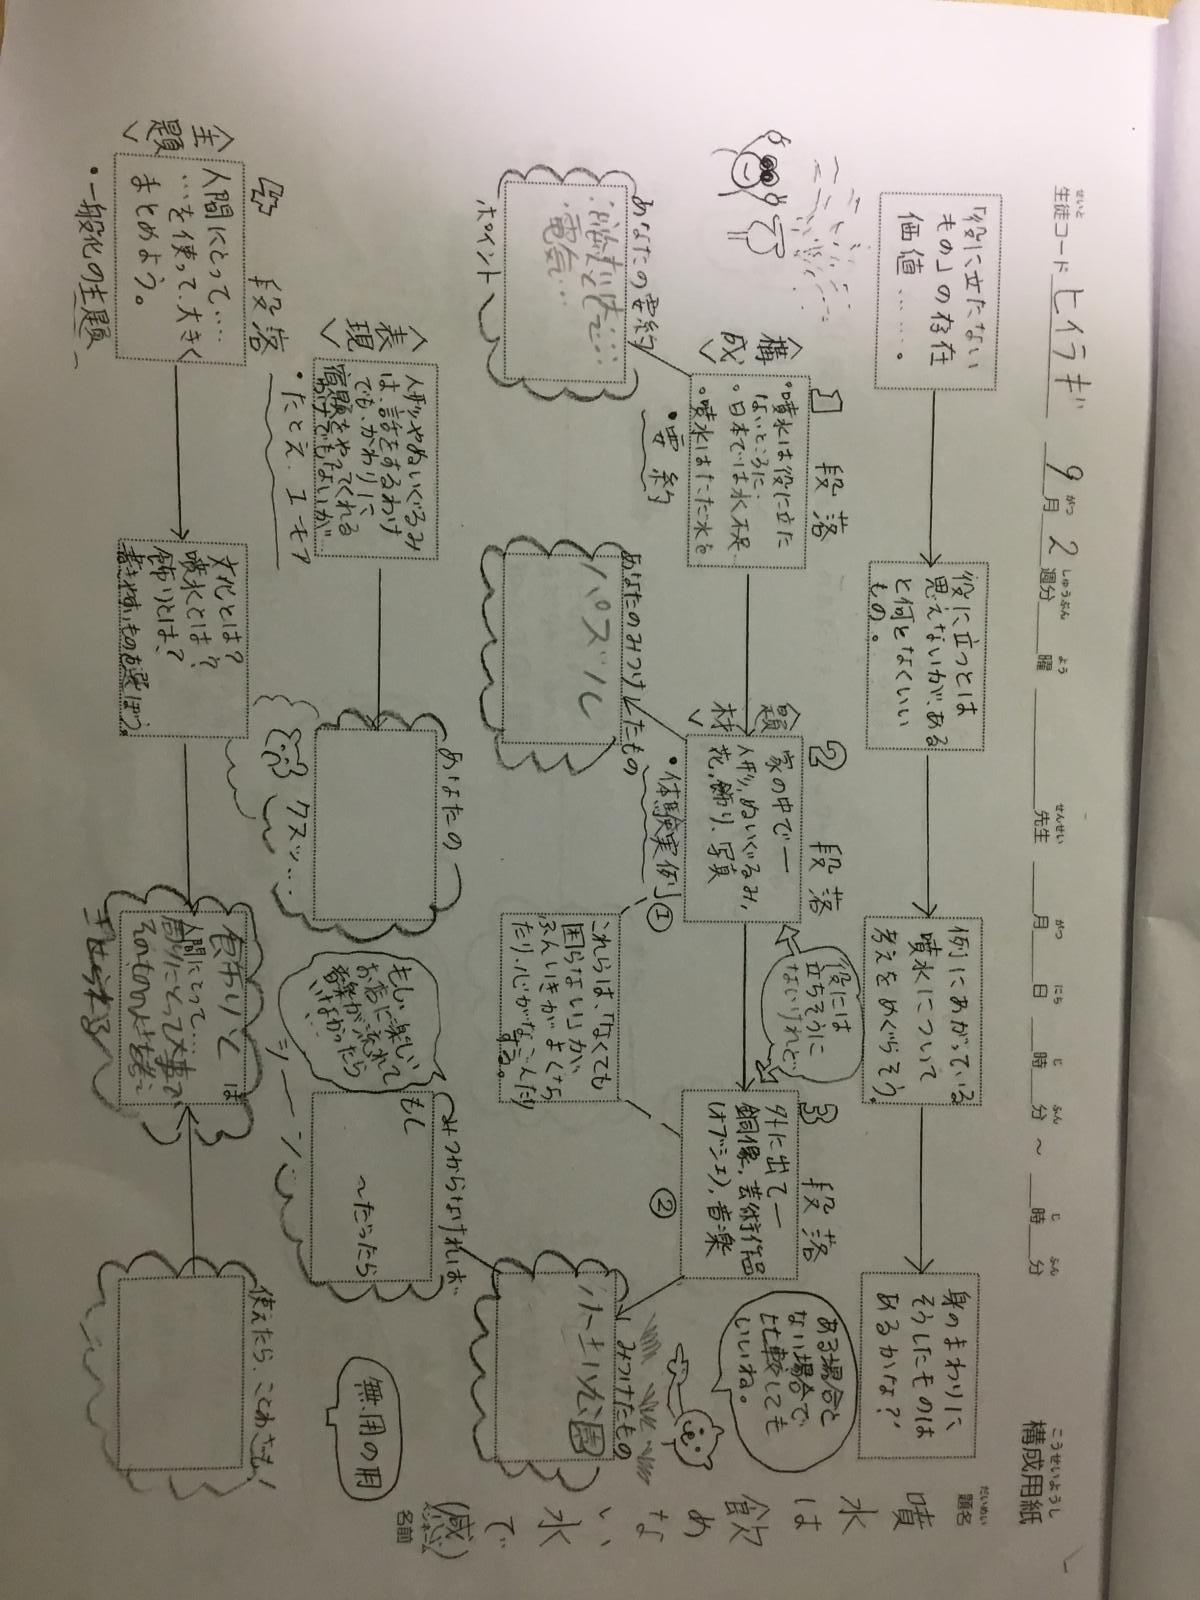 構成用紙
こうせいようし
生徒コード ヒイラギ 9月2週分 曜 先生 月 日 時 分 ～ 時 分
せいと がつ しゅうぶん よう せんせい がつ にち じ ふん じ ふん
題名
だいめい
噴水は飲めない水で
名前
(減)
「役に立たない
もの」の存在
価値……。
役に立つとは
思えないが、ある
と何となくいい
もの。
例にあがっている
噴水について
考えをめぐらそう。
身のまわりに
そうしたものは
あるかな？
〈構成〉
1 段落
・噴水は役に立た
ないところに…
・日本では水不足…
・噴水はただ水を
・要約
あなたの要約
電気…
ポイント
〈題材〉
2 段落
家の中で―
人形、ぬいぐるみ、
花、飾り、写真
・体験実例 ①
あなたのみつけたもの
パズル
役には
立ちそうに
ないけれど、
3 段落
外に出て―
銅像、芸術作品
(オブジェ)、音楽
②
これらは、「なくても
困らない」が、
ふんいきがよくなっ
たり、心がなごんだり
する。
ある場合と
ない場合で
比較しても
いいね。
みつけたもの
公園
〈表現〉
人形やぬいぐるみ
は、話をするわけ
でも、かわりに、
宿題をやってくれる
わけでもないが…
・たとえ、ユーモア
あなたの
クスッ…
みつからなければ、
もし
～だったら
もし、楽しい
お店に流れて
音楽がなかったら
シーン…
無用の用
4 段落
〈主題〉
人間にとって…
…を使って、大きく
まとめよう。
・一般化の主題
文化とは？
噴水とは？
飾りとは？
書きやすいものを選ぼう。
飾りとは
人間にとって…
使えたら、ことわざも！